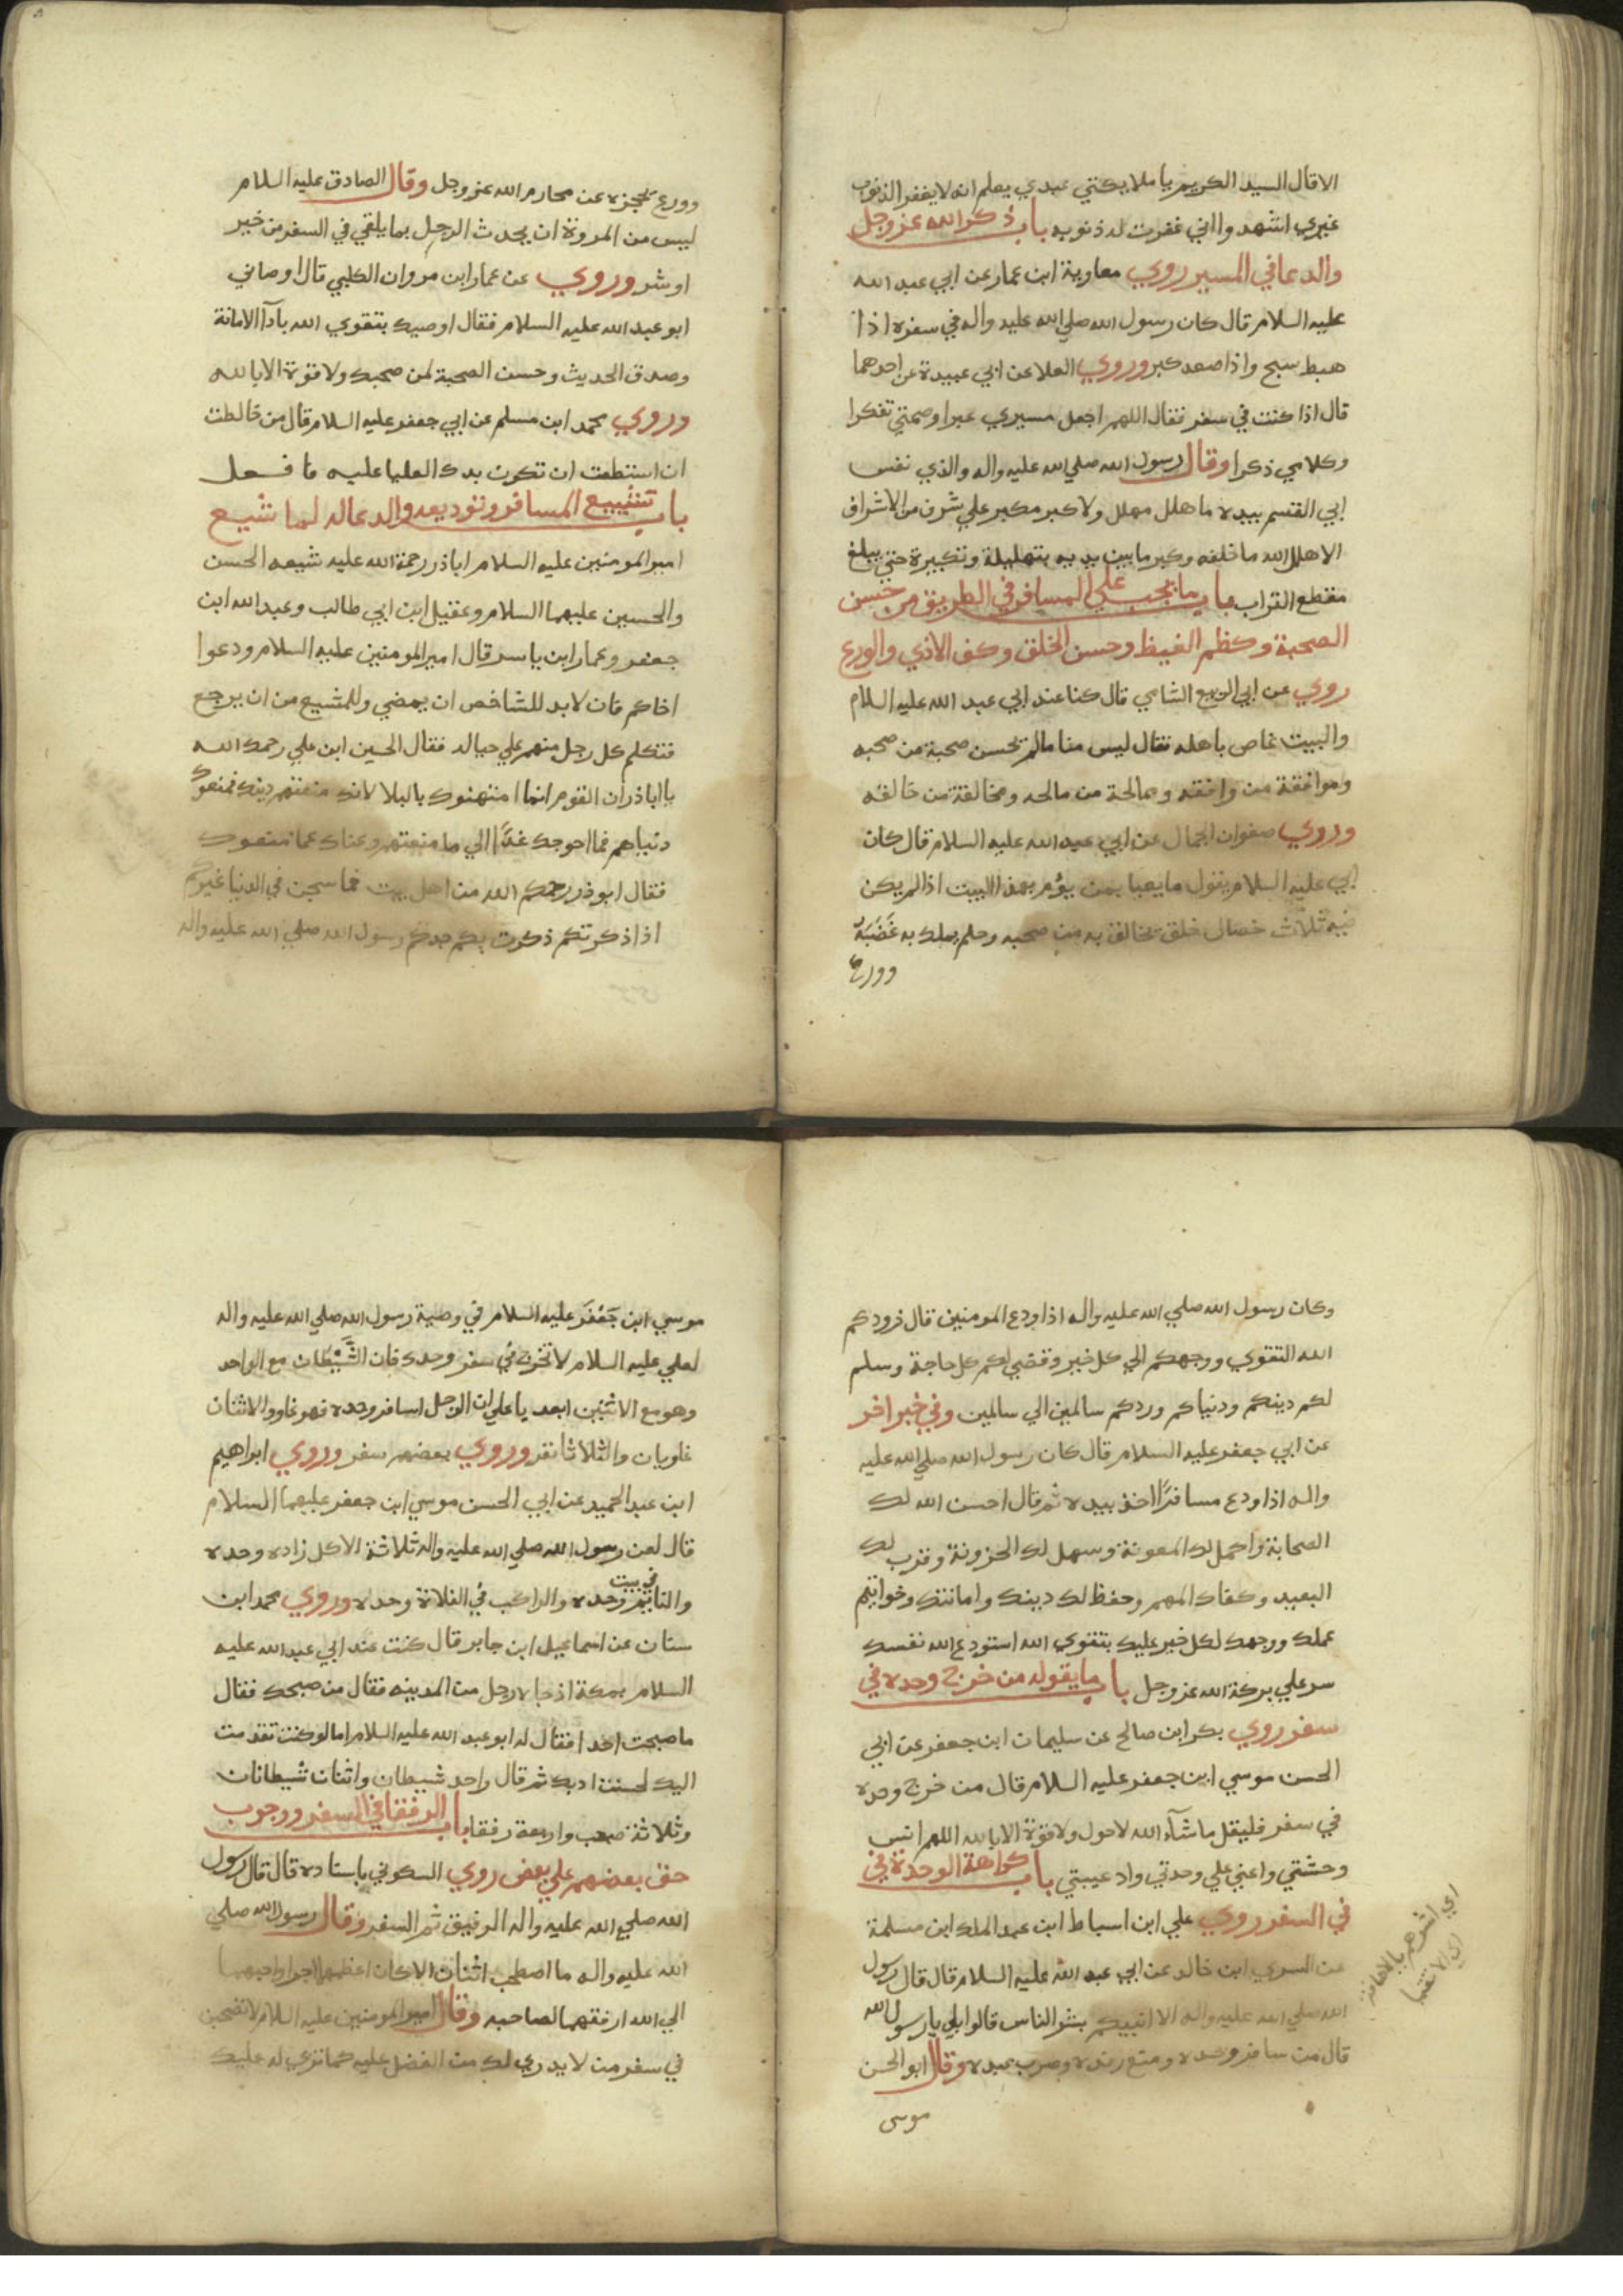 الا قال السيد الكريم يا ملايكتي عبدي يعلم انه لا يغفر الذنوب
غيري اشهدوا اني غفرت له ذنوبه باب ذكر الله عز وجل
والدعا في المسير روي معاوية ابن عمار عن ابي عبد الله
عليه السلام قال كان رسول الله صلي الله عليه واله في سفره اذا
هبط سبح واذا صعد كبر وروي العلا عن ابي عبيدة عن احدهما
قال اذا كنت في سفر فقال اللهم اجعل مسيري عبرا وصمتي تفكرا
وكلامي ذكرا وقال رسول الله صلي الله عليه واله والذي نفس
ابي القسم بيده ما هلل مهلل ولا كبر مكبر علي شرف من الاشراف
الا هلل الله ما خلفه وكبر ما بين يديه بتهليله وتكبيرة حتي يبلغ
مقطع التراب باب ما يجب علي المسافر في الطريق من حسن
الصحبة وكظم الغيظ وحسن الخلق وكف الاذي والورع
روي عن ابي الربيع الشامي قال كنا عند ابي عبد الله عليه السلام
والبيت غاص باهله فقال ليس منا مالم يحسن صحبة من صحبه
وموافقة من وافقه وممالحة من مالحه ومخالفة من خالفه
وروي صفوان الجمال عن ابي عبد الله عليه السلام قال كان
ابي عليه السلام يقول ما يعبا بمن يؤم هذا البيت اذا لم يكن
فيه ثلاث خصال خلق يخالق به من صحبه وحلم يملك به غضبه
وورع
وورع يحجزه عن محارم الله عز وجل وقال الصادق عليه السلام
ليس من المروة ان يحدث الرجل بما يلقي في السفر من خير
او شر وروي عن عمار ابن مروان الكلبي قال اوصاني
ابو عبد الله عليه السلام فقال اوصيك بتقوي الله باداآ الامانة
وصدق الحديث وحسن الصحبة لمن صحبك ولا قوة الا بالله
وروي محمد ابن مسلم عن ابي جعفر عليه السلام قال من خالطت
ان استطعت ان تكون يدك العليا عليه فافعل
باب تشييع المسافر وتوديعه والدعا له لما شيع
امير المومنين عليه السلام اباذر رحمة الله عليه شيعه الحسن
والحسين عليهما السلام وعقيل ابن ابي طالب وعبد الله ابن
جعفر وعمار ابن ياسر قال امير المومنين عليه السلام ودعوا
اخاكم فان لابد للشاخص ان يمضي وللمشيع من ان يرجع
فتكلم كل رجل منهم علي حياله فقال الحسين ابن علي رحمك الله
يا اباذر ان القوم انما امتهنوك بالبلا لانك منعتهم دينك فمنعوك
دنياهم فما احوجك غدا الي ما منعتهم وغناك عما منعوك
فقال ابوذر رحمكم الله من اهل بيت فما شجن في الدنيا غيركم
اذا ذكرتكم ذكرت بكم جدكم رسول الله صلي الله عليه واله
وكان رسول الله صلي الله عليه واله اذا ودع المومنين قال زودكم
الله التقوي ووجهكم الي كل خير وقضي لكم كل حاجة وسلم
لكم دينكم ودنياكم وردكم سالمين الي سالمين وفي خبر اخر
عن ابي جعفر عليه السلام قال كان رسول الله صلي الله عليه
واله اذا ودع مسافرا اخذ بيده ثم قال احسن الله لك
الصحابة واكمل لك المعونة وسهل لك الحزونة وقرب لك
البعيد وكفاك المهم وحفظ لك دينك وامانتك وخواتيم
عملك ووجهك لكل خير عليك بتقوي الله استودع الله نفسك
سر علي بركة الله عز وجل باب ما يقوله من خرج وحده في
سفر روي بكر ابن صالح عن سليمان ابن جعفر عن ابي
الحسن موسي ابن جعفر عليه السلام قال من خرج وحده
في سفر فليقل ما شآء الله لا حول ولا قوة الا بالله اللهم انس
وحشتي واعني علي وحدتي واد غيبتي باب كراهة الوحدة في
في السفر روي علي ابن اسباط ابن عبد الملك ابن مسلمة
عن السري ابن خالد عن ابي عبد الله عليه السلام قال قال رسول
الله صلي الله عليه واله الا انبيكم بشر الناس قالوا بلي يا رسول الله
قال من سافر وحده ومنع رفده وضرب عبده وقال ابو الحسن
موسى
موسي ابن جعفر عليه السلام في وصية رسول الله صلي الله عليه واله
لعلي عليه السلام لا تخرج في سفر وحدك فان الشيطان مع الواحد
وهو مع الاثنين ابعد يا علي ان الرجل اسافر وحده فهو غاو والاثنان
غاويان والثلاثا نفر وروي بعضهم سفر وروي ابراهيم
ابن عبد الحميد عن ابي الحسن موسي ابن جعفر عليهما السلام
قال لعن رسول الله صلي الله عليه واله ثلاثة الاكل زاده وحده
والنايم في بيت وحده والراكب في الفلاة وحده وروي محمد ابن
سنان عن اسماعيل ابن جابر قال كنت عند ابي عبد الله عليه
السلام بمكة اذ جاه رجل من المدينه فقال من صحبك فقال
ما صحبت احدا فقال له ابو عبد الله عليه السلام اما لو كنت تقدمت
اليك لحسنت ادبك ثم قال واحد شيطان واثنان شيطانان
وثلاثة صحب واربعة رفقا باب الرفقا في السفر ووجوب
حق بعضهم علي بعض روي السكوني باسناده قال قال رسول
الله صلي الله عليه واله الرفيق ثم السفر وقال رسول الله صلي
الله عليه واله ما اصطحب اثنان الا كان اعظمهما اجرا واحبهما
الي الله ارفقهما لصاحبه وقال امير المومنين عليه السلام لا تصحبن
في سفر من لا يدري لك من الفضل عليه كما تري له عليك